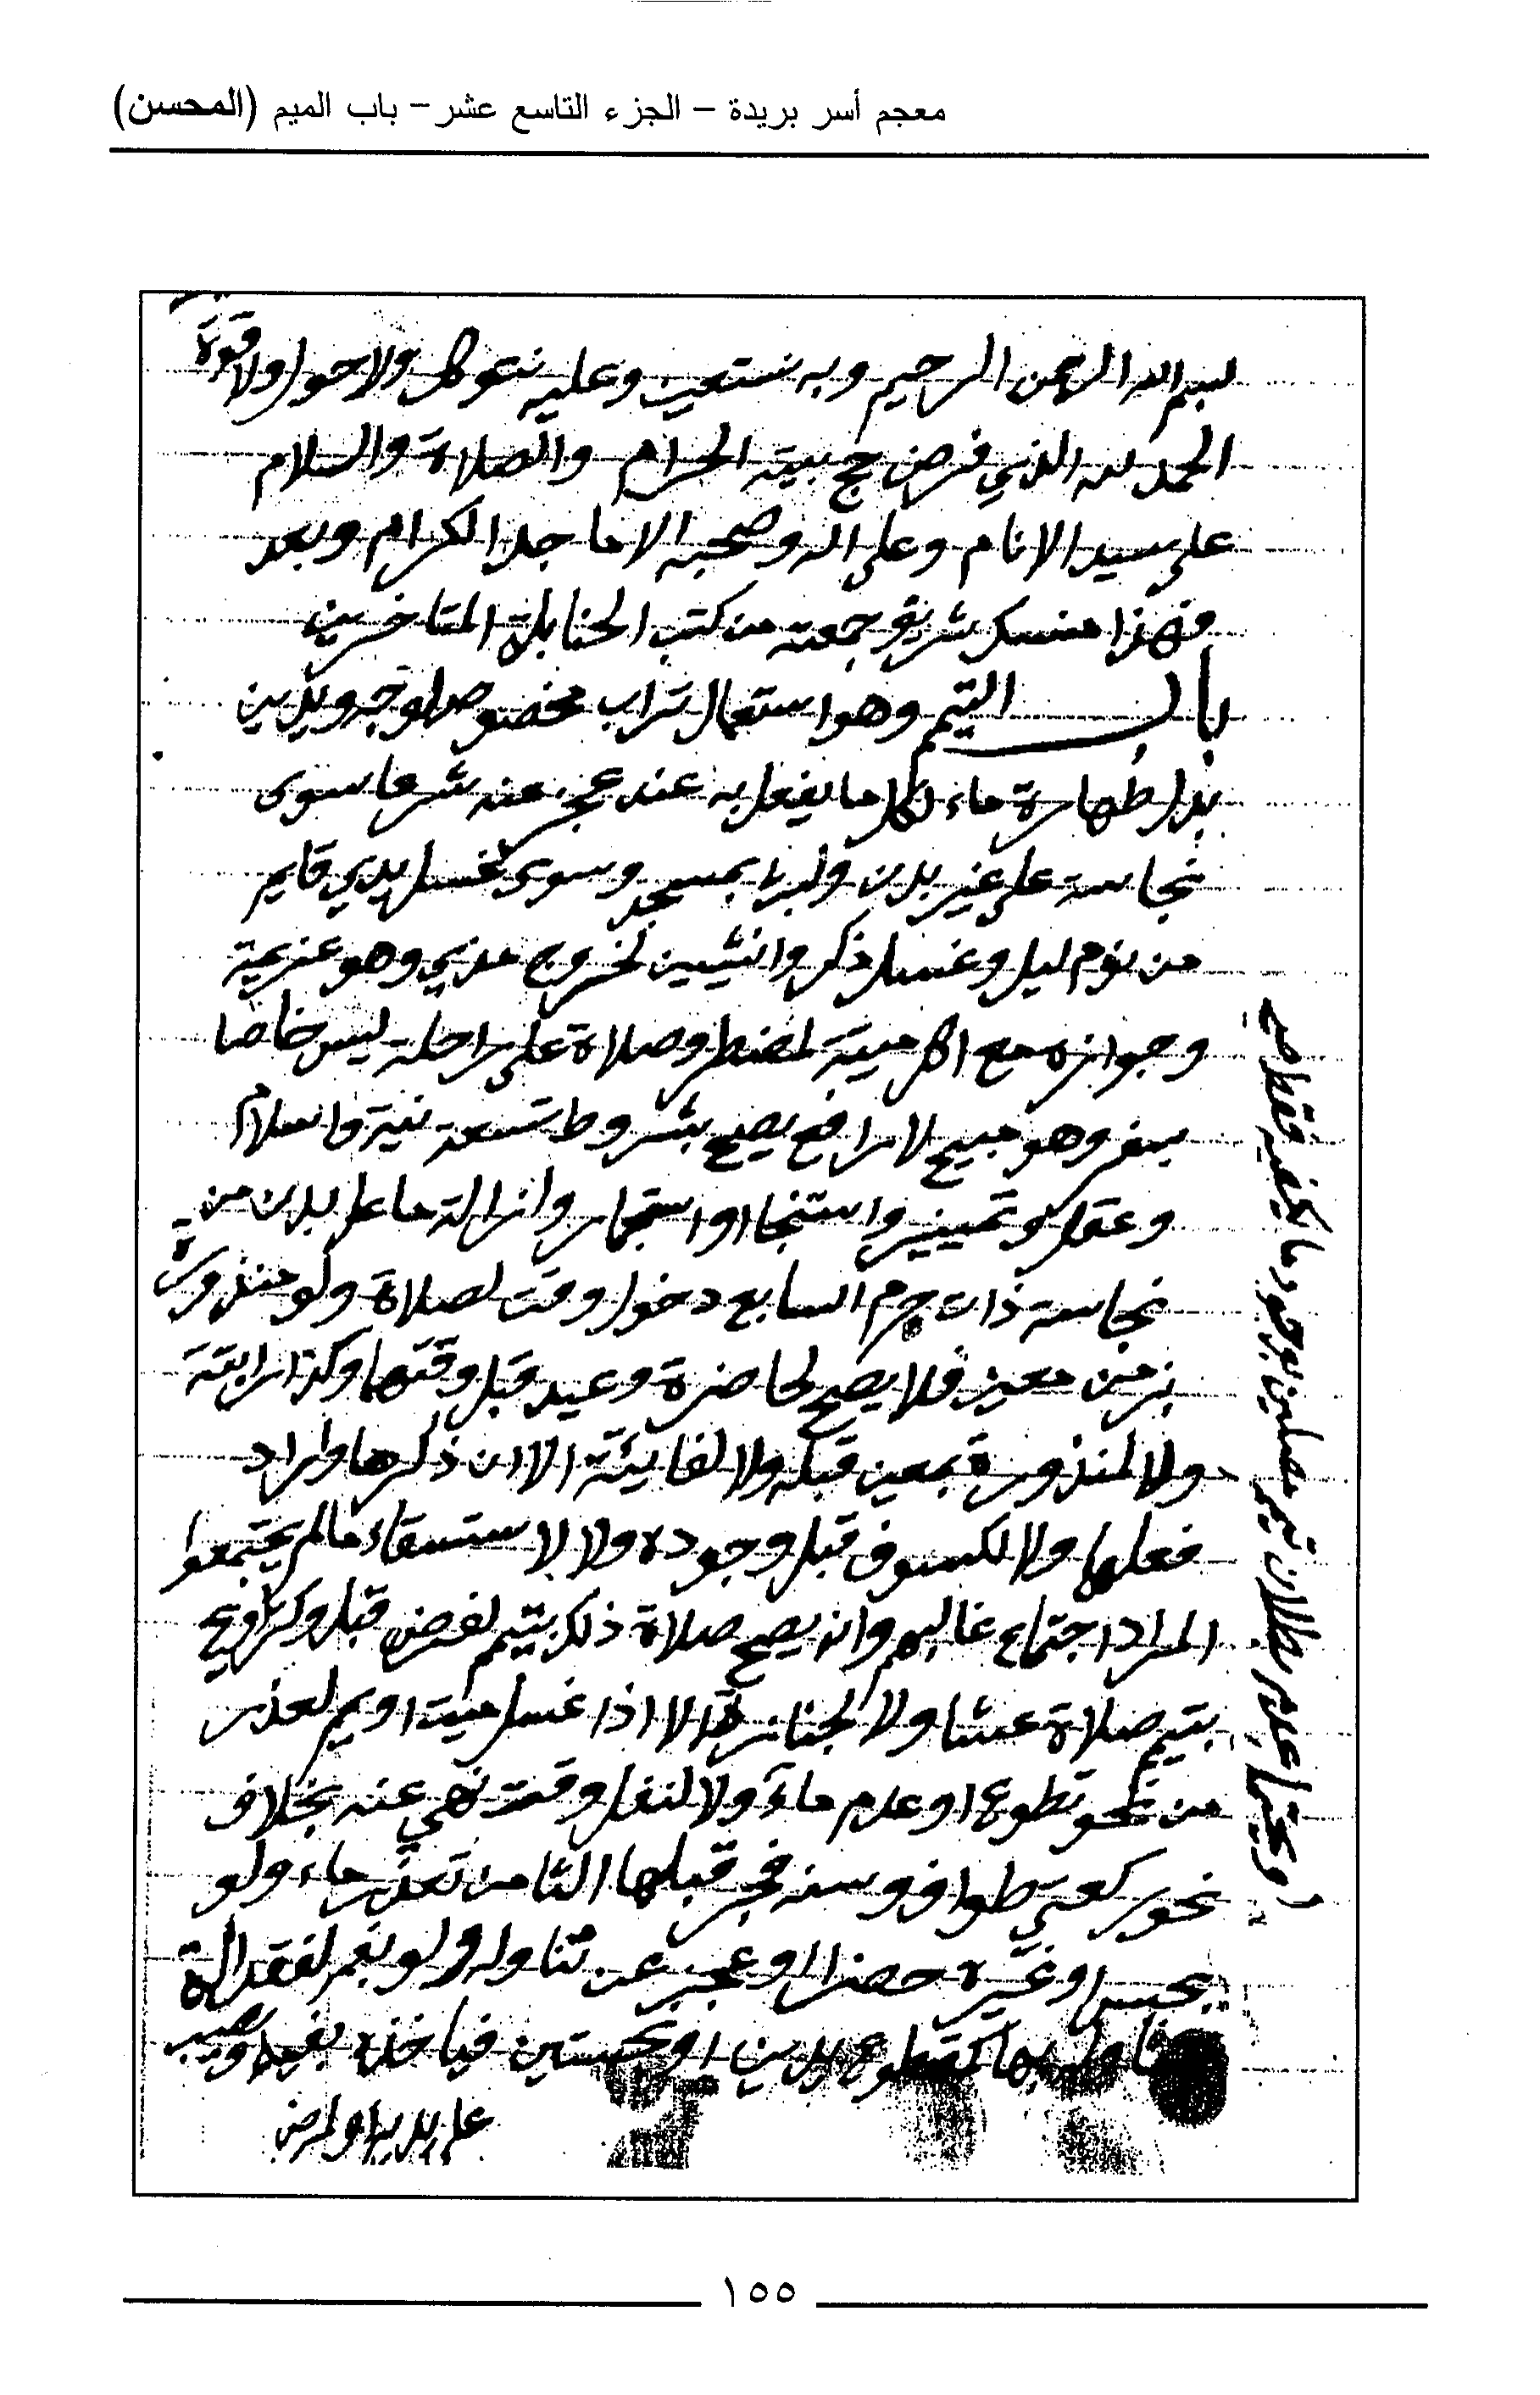 معجم أسر بريدة – الجزء التاسع عشر – باب الميم (المحسن)
بسم الله الرحمن الرحيم وبه نستعين وعليه نتوكل ولا حول ولا قوة
الحمد لله الذي فرض حج بيته الحرام والصلاة والسلام
على سيد الانام وعلى اله وصحبه الاماجد الكرام وبعد
فهذا منسك شريف جمعته من كتب الحنابلة المتاخرين
باب التيمم وهو استعمال تراب مخصوص لوجه ويدين
بدل طهارة ماء لكل ما يفعل به عند عجز عنه شرعا سوى
نجاسة على غير بدن ولبث بمسجد وسوى غسل يدي قايم
من نوم ليل وغسل ذكر وانثيين لخروج مذي وهو عزيمة
وجوازه مع اكل ميتة لمضطر وصلاة على راحلة ليس خاصا
بسفر وهو مبيح لا رافع يصح بشروط تسعة نية واسلام
وعقل وتمييز واستنجا او استجمار وازالة ما على بدن من
نجاسة ذات جرم السابع دخول وقت لصلاة ولو منذورة
بزمن معين فلا يصح لحاضرة وعيد قبل وقتها وكذا راتبة
ولا لمنذورة بمعين قبله ولا لفايئتة الا ان ذكرها واراد
فعلها ولا لكسوف قبل وجوده ولا لاستسقاء مالم يجتمعوا
المراد اجتماع غالبهم وانه يصح صلاة ذلك بتيمم لفرض قبل وكتراويح
بتيمم صلاة عشا ولا لجنازة الا اذا غسل ميت او يمم لعذر
من نحو تطوع او عدم ماء ولا لنفل وقت نهي عنه بخلاف
نحو ركعتي طواف وسنة فجر قبلها الثامن تعذر ماء ولو
بحبس او غيره حضرا او عجز عن تناوله ولو بفم لفقد الة
يتناول بها كمقطوع يدين او
على يديه او لمرض
١٥٥